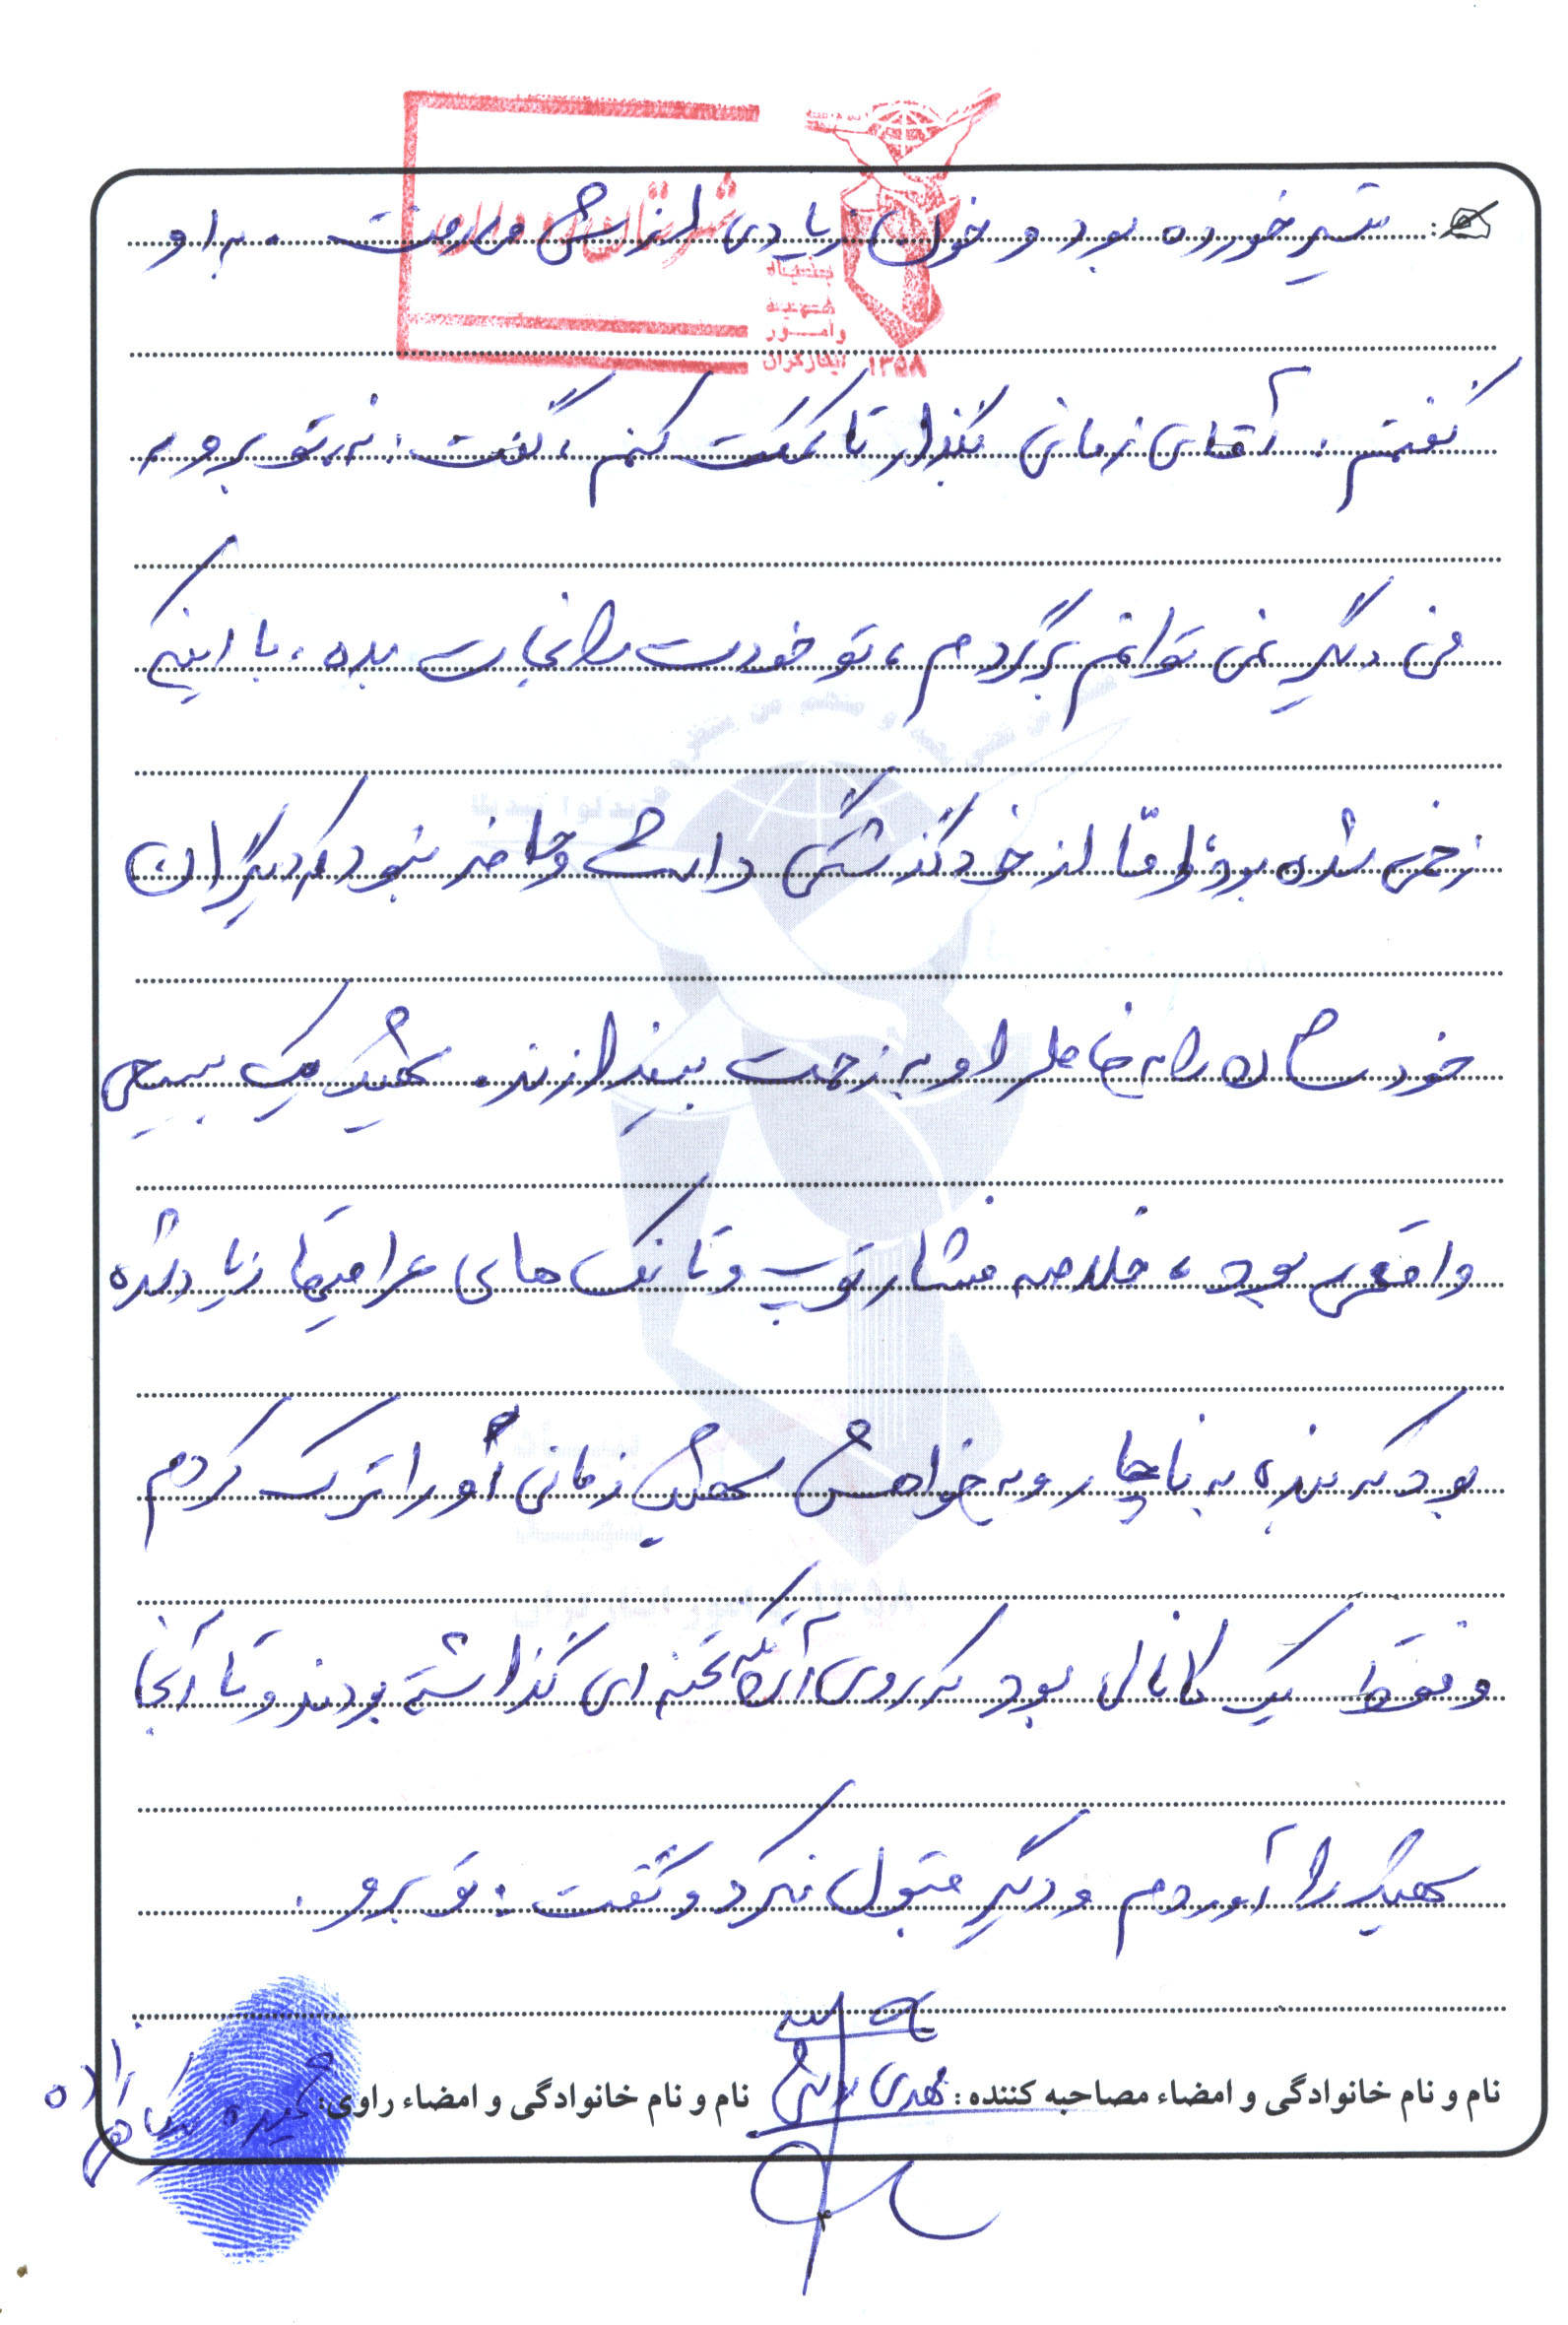 تیر خورده بود و خون زیادی ازش می‌رفت. به او
بنیاد
شهید
و امور
ایثارگران
۱۳۵۸
گفتم: آقای زمانی بگذار تا کمکت کنم، گفت: نه، تو برو
من دیگر نمی توانم برگردم، تو خودت را نجات بده، با اینکه
زخمی شده بود، امّا از خود گذشتگی داشت و حاضر نبود که دیگران
خودشان را به خاطر او به زحمت بیندازند. شهید یک بسیجی
واقعی بود، خلاصه فشار توپ و تانک های عراقیها زیاد شده
بود که بنده به ناچار و به خواهش شهید زمانی او را ترک کردم
و فقط یک کانال بود که روی آن تکه تخته ای گذاشته بودند و تا آنجا
شهید را آوردم و دیگر قبول نکرد و گفت: تو برو.
نام و نام خانوادگی و امضاء مصاحبه کننده: مهدی
نام و نام خانوادگی و امضاء راوی: